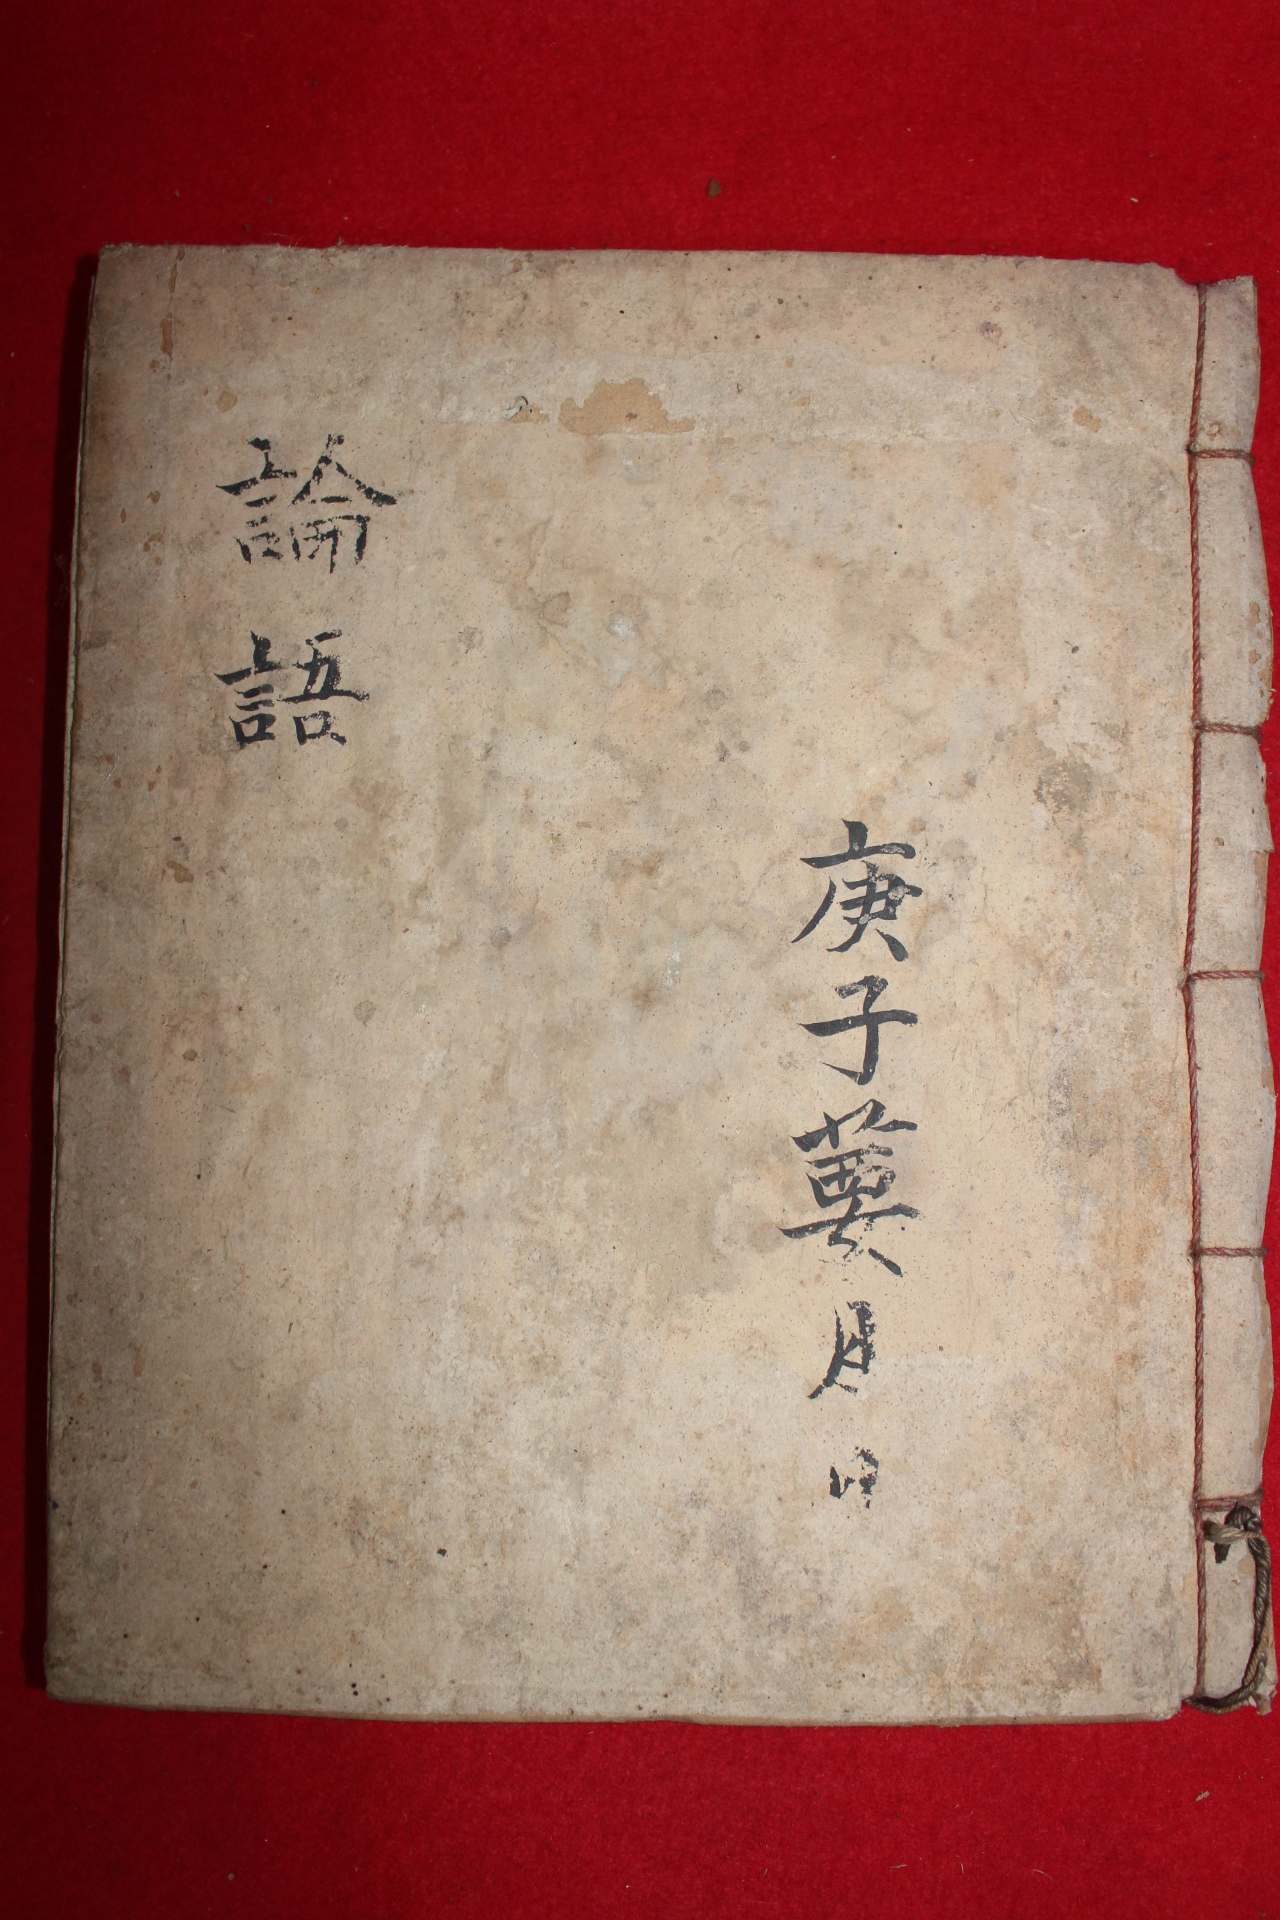 庚子葽月日
論語